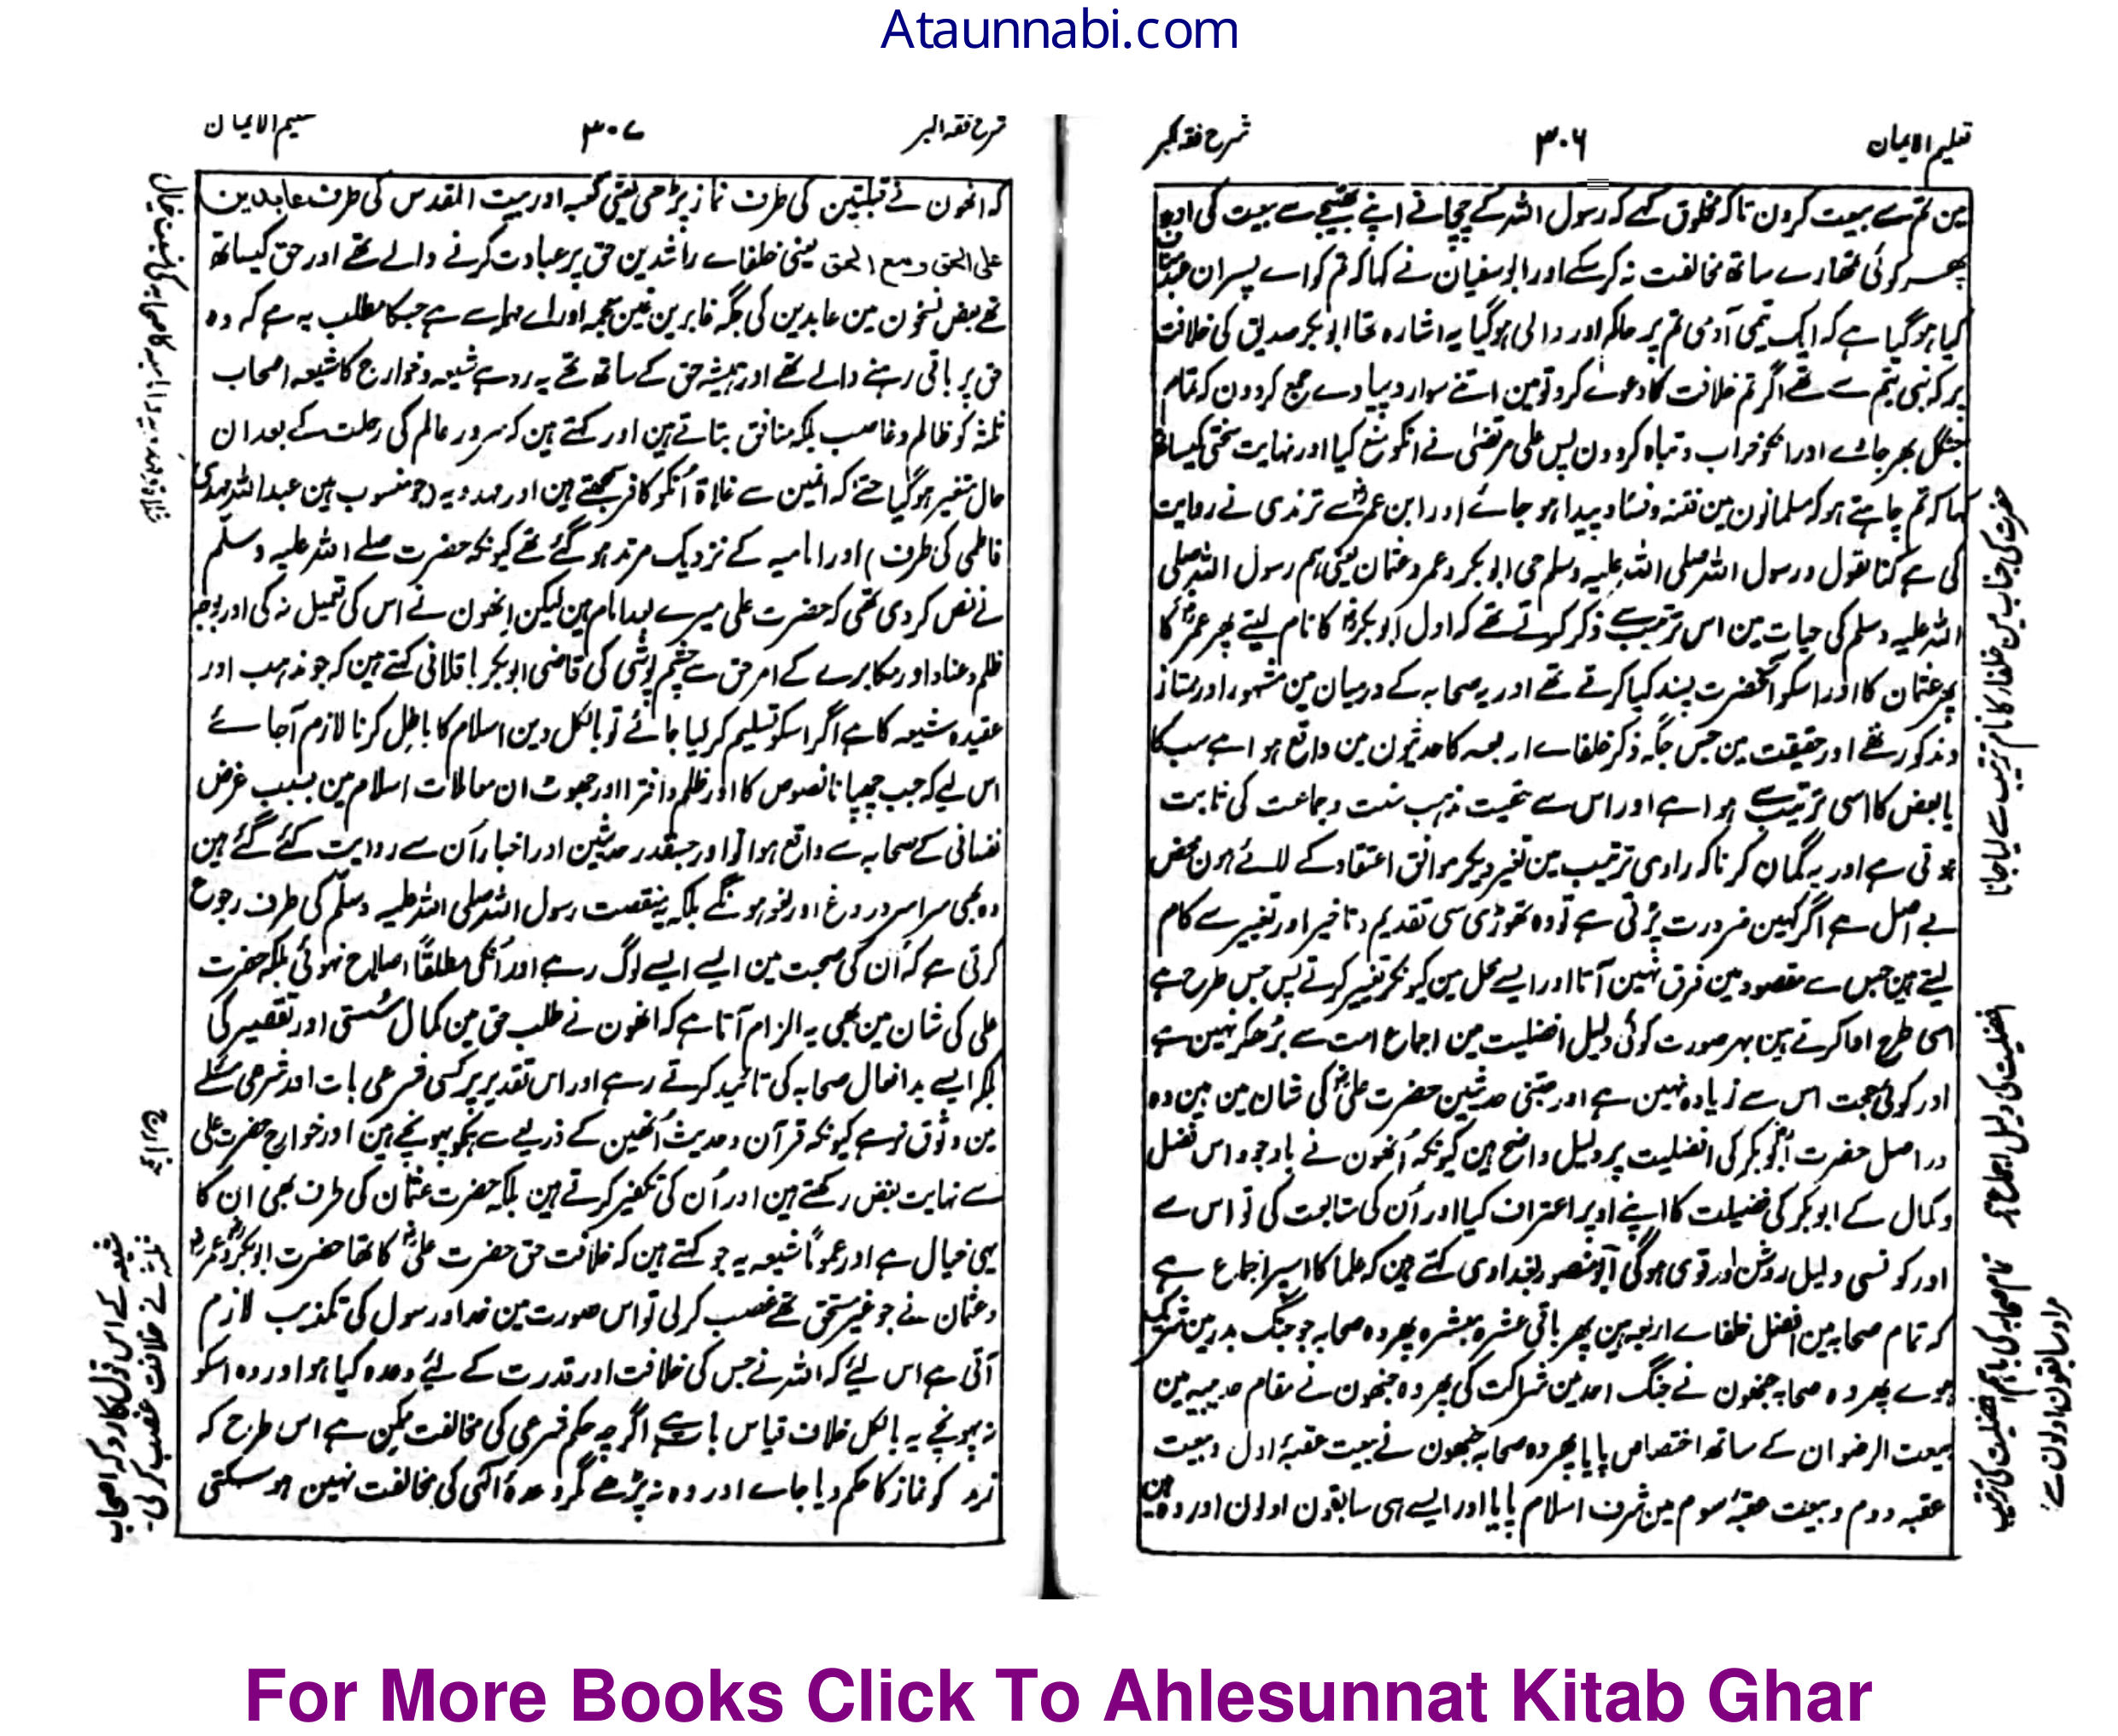 Ataunnabi.com
تعلیم الایمان
۳۰۶
شرح فقہ اکبر
مین تم سے بیعت کرون تاکہ مخلوق کہے کہ رسول اللہ کے چچا نے اپنے بھتیجے سے بیعت کی اور
پھر کوئی تمھارے ساتھ مخالفت نہ کرسکے اور ابو سفیان نے کہا کہ تم کو اے پسران عبد مناف
کیا ہوگیا ہے کہ ایک تیمی آدمی تم پر حاکم اور والی ہوگیا یہ اشارہ تھا ابو بکر صدیق کی خلافت
پر کہ بنی تیم سے تھے اگر تم خلافت کا دعوے کرو تو مین اتنے سوار و پیادے جمع کردون کہ تمام
جنگل بھر جائے اور انکو خراب و تباہ کردون پس علی مرتضیٰ نے انکو منع کیا اور نہایت سختی کیساتھ
کہا کہ تم چاہتے ہو کہ مسلمانون مین فتنہ و فساد پیدا ہو جائے اور ابن عمرؓ سے ترمذی نے روایت
کی ہے کنا نقول و رسول اللہ صلی اللہ علیہ وسلم حی ابو بکر و عمر و عثمان یعنی ہم رسول اللہ صلی
اللہ علیہ وسلم کی حیات مین اس ترتیب سے ذکر کرتے تھے کہ اول ابو بکرؓ کا نام لیتے پھر عمرؓ کا
پھر عثمان کا اور اسکو آنحضرت پسند کیا کرتے تھے اور یہ صحابہ کے درمیان مین مشہور اور ممتاز
و مذکور تھے اور حقیقت مین جس جگہ ذکر خلفاے اربعہ کا حدیثون مین واقع ہوا ہے سب کا
یا بعض کا اسی ترتیب سے ہوا ہے اور اس سے حقیت مذہب سنت وجماعت کی ثابت
ہوتی ہے اور یہ گمان کرنا کہ راوی ترتیب مین تغیر دیکر موافق اعتقاد کے لائے ہون محض
بے اصل ہے اگر کہین ضرورت پڑتی ہے تو وہ تھوڑی سی تقدیم و تاخیر اور تغییر سے کام
لیتے ہین جس سے مقصود مین فرق نہین آتا اور ایسے محل مین کیونکر تغییر کرتے پس جس طرح ہے
اسی طرح ادا کرتے ہین بہر صورت کوئی دلیل افضلیت مین اجماع امت سے بڑھکر نہین ہے
اور کوئی حجت اس سے زیادہ نہین ہے اور جتنی حدیثین حضرت علیؓ کی شان مین ہین وہ
دراصل حضرت ابو بکر کی افضلیت پر دلیل واضح ہین کیونکہ اُنھون نے باوجود اس فضل
و کمال کے ابو بکر کی فضیلت کا اپنے اوپر اعتراف کیا اور اُن کی متابعت کی تو اس سے
اور کونسی دلیل روشن اور قوی ہوگی ابو منصور بغدادی کہتے ہین کہ علما کا اسپر اجماع ہے
کہ تمام صحابہ مین افضل خلفاے اربعہ ہین پھر باقی عشرہ مبشرہ پھر وہ صحابہ جو جنگ بدر مین شریک
ہوے پھر وہ صحابہ جنھون نے جنگ احد مین شراکت کی پھر وہ جنھون نے مقام حدیبیہ مین
بیعت الرضوان کے ساتھ اختصاص پایا پھر وہ صحابہ جنھون نے بیعت عقبۂ اولیٰ وبیعت
عقبہ دوم و بیعت عقبۂ سوم مین شرف اسلام پایا اور ایسے ہی سابقون اولون اور وہ ہین
حضرت کی جناب مین خلفا کا نام ترتیب سے لیا جانا
افضلیت کی دلیل اجماع ہے
تمام صحابہ کی باہم افضلیت کی ترتیب
مراد سابقون اولون سے
شرح فقہ اکبر
۳۰۷
تعلیم الایمان
کہ انھون نے قبلتین کی طرف نماز پڑھی یعنی کعبہ اور بیت المقدس کی طرف عابدین
علی الحق ومع الحق یعنی خلفاے راشدین حق پر عبادت کرنے والے تھے اور حق کیساتھ
تھے بعض نسخون مین عابدین کی جگہ غابرین غین معجمہ اور راے مہملہ سے ہے جسکا مطلب یہ ہے کہ وہ
حق پر باقی رہنے والے تھے اور ہمیشہ حق کے ساتھ تھے یہ رد ہے شیعہ و خوارج کا شیعہ اصحاب
ثلثہ کو ظالم و غاصب بلکہ منافق بتاتے ہین اور کہتے ہین کہ سرور عالم کی رحلت کے بعد ان
حال متغیر ہوگیا حتے کہ انمین سے غلاۃ اُنکو کافر سمجھتے ہین اور مہدویہ (جو منسوب ہین عبد اللہ مہدی
فاطمی کی طرف) اور امامیہ کے نزدیک مرتد ہوگئے تھے کیونکہ حضرت صلے اللہ علیہ وسلم
نے نص کردی تھی کہ حضرت علی میرے بعد امام ہین لیکن انھون نے اس کی تعمیل نہ کی اور بوجہ
ظلم و عناد اور مکابرے کے امر حق سے چشم پوشی کی قاضی ابو بکر باقلانی کہتے ہین کہ جو مذہب اور
عقیدہ شیعہ کا ہے اگر اسکو تسلیم کرلیا جائے تو بالکل دین اسلام کا باطل کرنا لازم آجائے
اس لیے کہ جب چھپانا نصوص کا اور ظلم و افترا اور جھوٹ ان معاملات اسلام مین بسبب غرض
نفسانی کے صحابہ سے واقع ہوا تو اور جسقدر حدیثین اور اخبار اُن سے روایت کئے گئے ہین
وہ بھی سراسر دروغ اور لغو ہونگے بلکہ یہ منقصت رسول اللہ صلی اللہ علیہ وسلم کی طرف رجوع
کرتی ہے کہ اُن کی صحبت مین ایسے ایسے لوگ رہے اور اُنکی مطلقاً اصلاح نہوئی بلکہ حضرت
علی کی شان مین بھی یہ الزام آتا ہے کہ انھون نے طلب حق مین کمال سُستی اور تقصیر کی
بلکہ ایسے بد افعال صحابہ کی تائید کرتے رہے اور اس تقدیر پر کسی فرعی بات اور شرعی مسئلے
مین وثوق نرہے کیونکہ قرآن و حدیث اُنھین کے ذریعے سے ہمکو پہونچے ہین اور خوارج حضرت علی
سے نہایت بغض رکھتے ہین اور اُن کی تکفیر کرتے ہین بلکہ حضرت عثمان کی طرف بھی ان کا
یہی خیال ہے اور عموماً شیعہ یہ جو کہتے ہین کہ خلافت حق حضرت علیؓ کا تھا حضرت ابو بکرؓ و عمرؓ
و عثمان نے جو غیر مستحق تھے غصب کرلی تو اس صورت مین خدا و رسول کی تکذیب لازم
آتی ہے اس لیے کہ اللہ نے جس کی خلافت اور قدرت کے لیے وعدہ کیا ہو اور وہ اسکو
نہ پہونچے یہ بالکل خلاف قیاس بات ہے اگرچہ حکم شرعی کی مخالفت ممکن ہے اس طرح کہ
زید کو نماز کا حکم دیا جاے اور وہ نہ پڑھے مگر وعدۂ الٰہی کی مخالفت نہین ہو سکتی
شیعہ کے اس قول کا رد کہ اصحاب
ثلثہ نے خلافت غصب کرلی۔
For More Books Click To Ahlesunnat Kitab Ghar